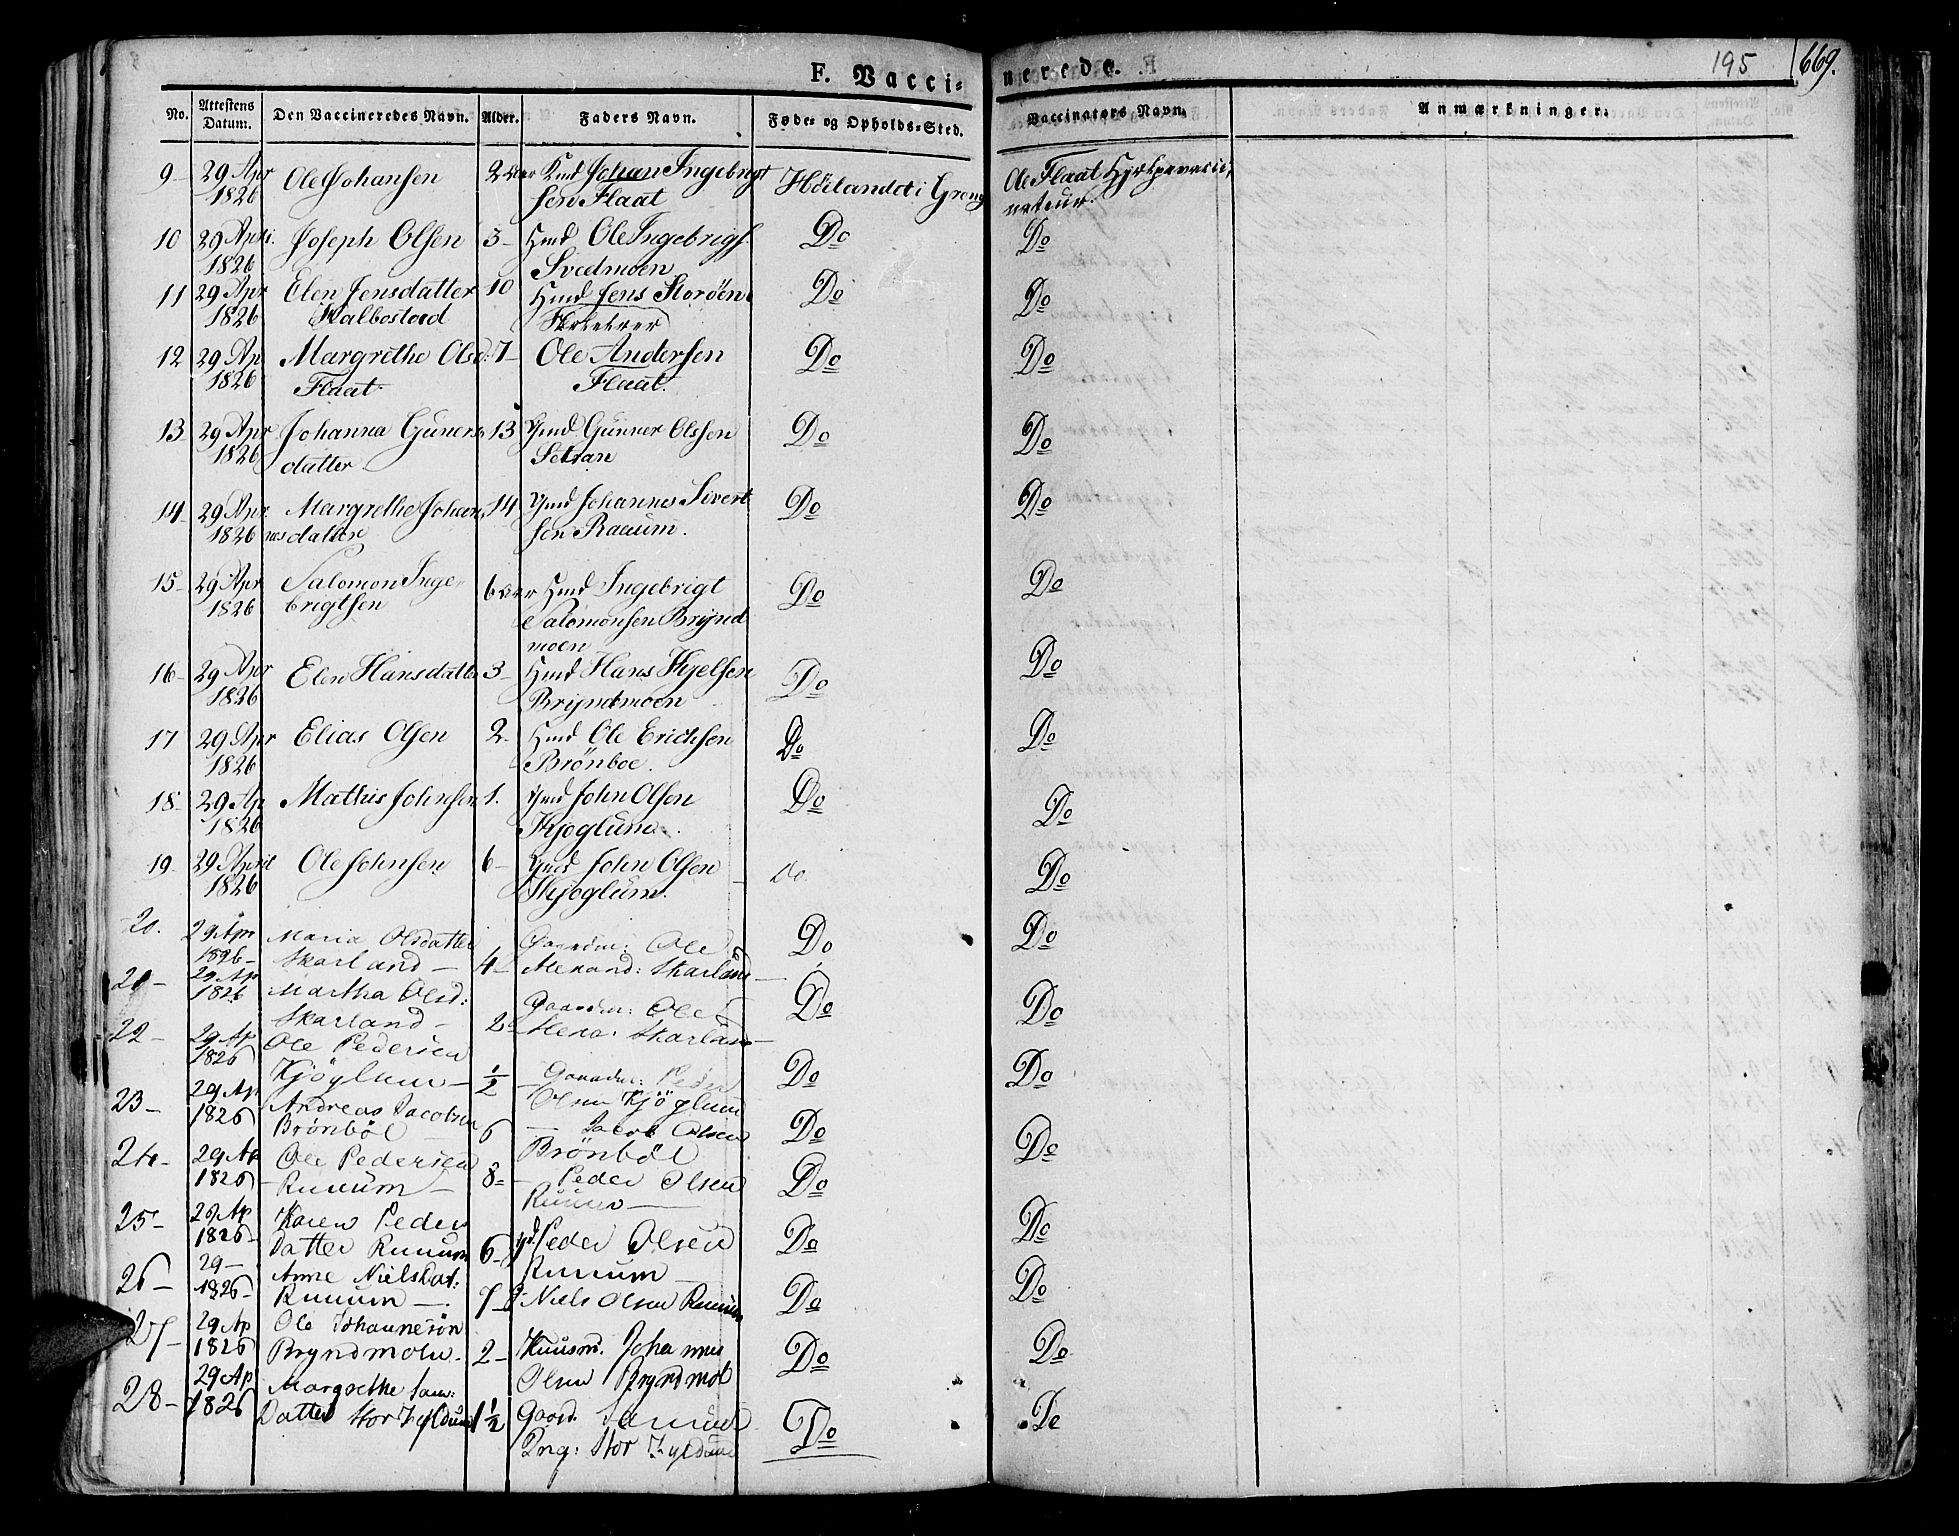 F. Vacci= nerede.
195
669.
No. Attestens Datum. Den Vaccineredes Navn. Alder. Faders Navn. Føde= og Opholds=Sted. Vaccinators Navn. Anmærkninger.
9 29 Apr Ole Johansen 2 Aar Hmd Johan Ingebrigt Høilandet i Grong Ole Flaat
1826 sen Flaat
10 29 Apri. Joseph Olsen 3 Hmd Ole Ingebrigs. Do Do
1826 Svedmoen
11 29 Apr Elen Jensdatter 10 Hmd Jens Storöen Do Do
1826 Kalbostad
12 29 Ap Margrethe Olsd: 7 Ole Andersen Do Do
1826 Flaat. Flaat.
13 29 Apr Johanna Guners 13 Gmd Gunner Olsen Do Do
1826 datter
14 29 Apr Margrethe Johan 14 Gmd Johannes Sivert Do Do
1826 nesdatter sen
15 29 Apr Salomon Inge 6 Aar Hmd Ingebrigt Do Do
1826 brigtsen Salomonsen Brynd
moen
16 29 Apr Elen Hansdatter 3 Hmd Hans Kjelsen Do Do
1826 Bryndmoen
17 29 Apr Elias Olsen 2 Hmd Ole Erichsen Do Do
1826 Brönboe.
18. 29 Ap Mathis Johnsen 1. Gmd John Olsen Do Do
1826 Kjøglum.
19 29 April Ole Johnsen 6 Gmd John Olsen Do. Do
1826 Kjøglum.
20. 29 Apr Maria Olsdatter Gaardm: Ole Do Do
1826 Skarland 4 Alexand: Skarland
21 29 Ap Martha Olsd: Gaardm: Ole Do Do
1826 Skarland 2 Alexa: Skarland
22 29 Ap Ole Pedersen
1826 Kjöglum 1/2 Gaardm: Peder Do Do
23 29 Ap Andreas Jacobsen Olsen Kjöglum
1826 Brönböl 6 Jacob Olsen Do Do
24 29 Ap Ole Pedersen Brönböl
1826 8 Peder Olsen Do
25 29 Ap Karen Peder Do
1826 Datter 6 Peder Olsen Do
26 29 Anne Nielsdat:
1826 7 Niels Olsen Do Do
27 29 Ap Ole Johannesön
1826 Bryndmoen 2 Huusmd. Johannes Do Do
28 29 Ap Margrethe Sam: Olsen Bryndmo
1826 Datter Stor 1 1/2 Gaard. Samuel Do Do
Ing: Stor